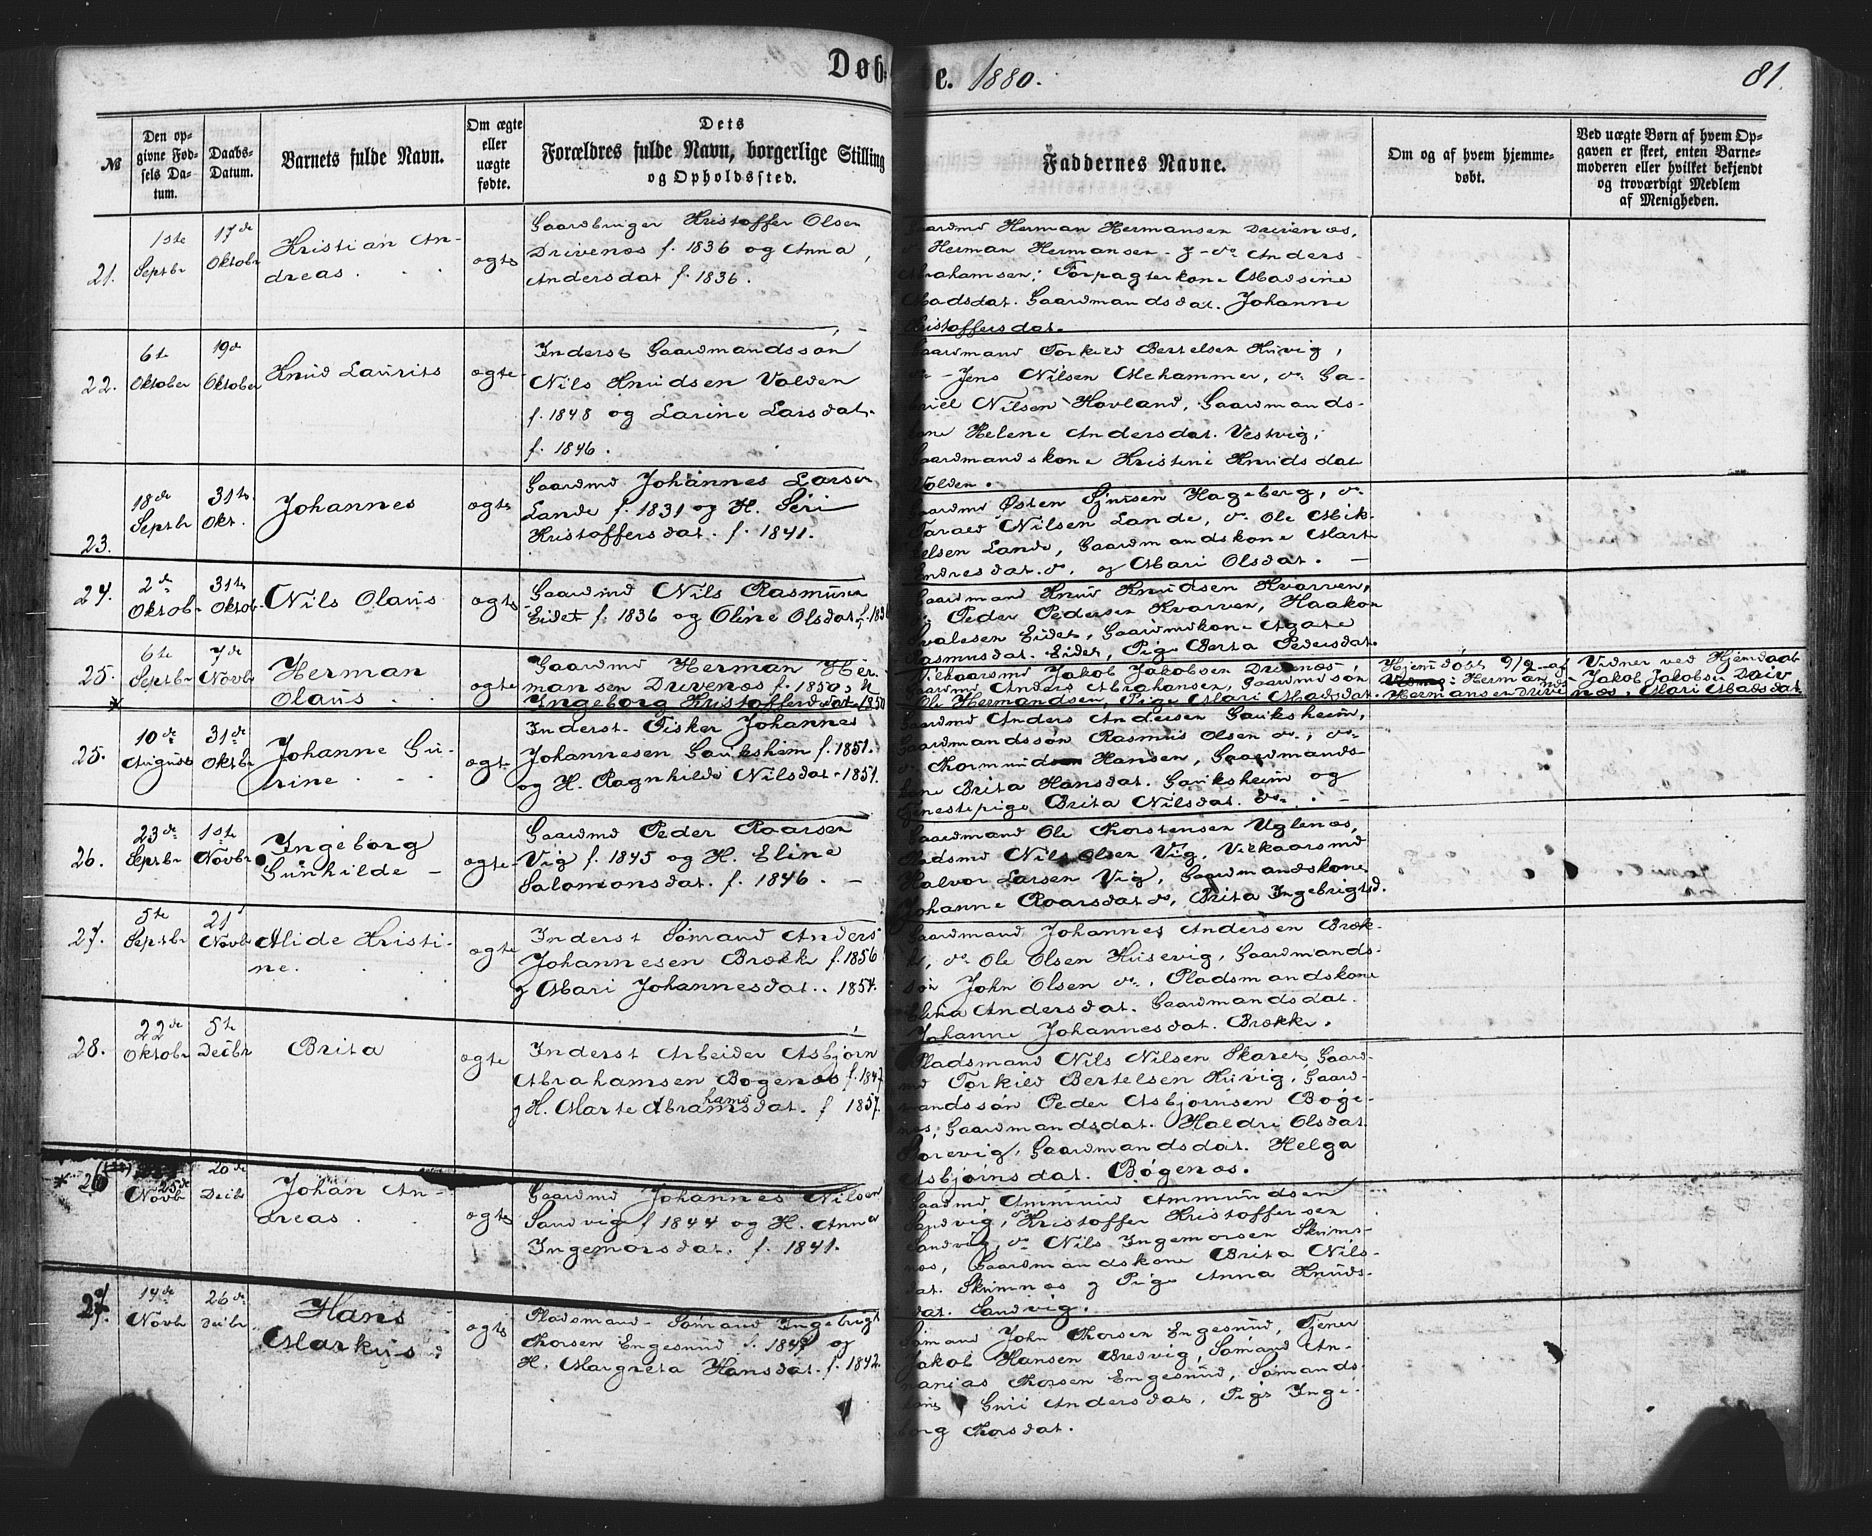 Døb-te. 1880.
81.
№
Den op-
givne Fød-
sels Da-
tum.
Daabs-
Datum.
Barnets fulde Navn.
Om ægte
eller
uægte
fødte.
Dets
Forældres fulde Navn, borgerlige Stilling
og Opholdssted.
Faddernes Navne.
Om og af hvem hjemme-
døbt.
Ved uægte Børn af hvem Op-
gaven er skeet, enten Barne-
moderen eller hvilket bekjendt
og troværdigt Medlem
af Menigheden.
21.
1ste
Septbr
17de
Oktobr
Kristian An-
dreas.
ægte
Gaardbruger Kristoffer Olsen
Drivenæs f. 1836 og Anna
Andersdat f. 1836.
Gaardmd Herman Hermansen Drivenæs,
Herman Hermansen Anders
Abrahamsen; Forpagterkone Madsine
Madsdat. Gaardmandsdat. Johanne
Kristoffersdat.
22.
6te
Oktober
19de
Oktober
Knud Laurits
ægte
Inderst Gaardmandssøn
Nils Knudsen Valden
f. 1848 og Larine Larsdat.
f. 1846.
Gaardmand Torkild Bertelsen Huvig,
do - Jens Nilsen Mehammer, do Ga-
briel Nilsen Hovland, Gaardmands-
kone Helene Andersdat. Vestvig,
Gaardmandskone Kristine Knudsdat
Volden.
23.
18de
Septbr
31te
Okt.
Johannes
ægte
Gaardmd Johannes Larsen
Lande f. 1831 og H. Seri
Kristoffersdat. f. 1841.
Gaardmd Østen Sjursen Hageberg, do
Tarald Nilsen Lande, do Ole Mik-
kelsen Lande, Gaardmandskone Marte
Endresdat. do. og Mari Olsdat. -
24.
2de
Oktob
31te
Oktob.
Nils Olaus
ægte
Gaardmd Nils Rasmusen
Eidet f. 1836 og Oline Olsdat f. 1836
Gaardmand Knud Knudsen Kvarven,
do Peder Pedersen Kvarven, Haakon
Svalesen Eidet, Gaardmdkone Agate
Rasmusdat. Eidet, Pige Berta Pedersdat.
25.
6te
Septbr
7de
Novbr
Herman
Olaus.
ægte
Gaardmd Herman Her-
mansen Drivenæs f. 1850 og H.
Ingeborg Kristoffersdat 1850
Vilkaarsmd Jakob Jakobsen Drivenæs,
Gaardmd Anders Abrahansen, Gaardmdsøn
Ole Hermandsen, Pige Mari Madsdat.
Hjemdøbt 9/9 af
Herman
Hermansen Drivenæs
Vidner ved Hjemdaab
Jakob Jakobsen Driv
næs, Mari Madsdat
25.
10de
August
31de
Oktbr
Johanne Gu-
rine
ægte
Inderst Fisker Johannes
Johannesen Gauksheim f. 1851.
og H. Ragnhilde Nilsdat - 1851.
Gaardmd Anders Andersen Gauksheim,
Gaardmandssøn Rasmus Olsen do., do
do Thormund Hansen, Gaardmands-
kone Brita Hansdat. Gauksheim og
Tjenestepige Brita Nilsdat. do. -
26.
23de
Septbr
1ste
Novbr
Ingeborg
Gunhilde -
ægte
Gaardmd Peder Roarsen
Vig f. 1845 og H. Eline
Salomonsdat. f. 1846. -
Gaardmand Ole Thorstensen Uglenæs,
Pladsmd Nils Olsen Vig, Vilkaarsmd
Halvor Larsen Vig, Gaardmandskone
Johanne Roarsdat do, Brita Ingebrigtsd.
27.
5te
Septbr
21
Novbr
Alide Kristi-
ne.
ægte
Inderst Sømand Anders
Johannesen Brække f. 1856
og Mari Johannesdat. 1854.
Gaardmand Johannes Andersen Bræk-
ke, do Ole Olsen Husevig, Gaardmands-
søn John Olsen do, Pladsmandskone
Elina Andersdat. Gaardmandsdat.
Johanne Johannesdat. Brække.
28.
22de
Oktobr
5te
Decbr
Brita
ægte
Inderst Arbeider Asbjørn
Abrahamsen Bøgenæs f. 1847
og H. Marte Abrahamsdat. f 1857.
Pladsmand Nils Nilsen Skaret, Gaard-
md Torkild Bertelsen Huvig, Gaard-
mandssøn Peder Asbjørnsen Bøge-
næs, Gaardmandsdat. Haldri Olsdat
Gaardmandsdat. Helga
Asbjørnsdat. Bøgenæs.
26
25de
Novb
20de
Decbr
Johan An-
dreas.
ægte
Gaardmd Johannes Nilsen
Sandvig f 1844 og H. Anna
Ingemorsdat. f. 1841.
Gaardmd Ammund Ammundsen
Sandvig, do Kristoffer Kristoffersen
Sandvig, do Nils Ingemorsen Skums-
næs, Gaardmandskone Brita Nils-
dat. Skumnæs og Pige Anna Knuds-
dat. Sandvig.
27
14de
Novbr
26de
Decbr
Hans
Markus
ægte
Pladsmand - Sømand Ingebrigt
Thorsen Engesund f. 1847 og
H. Margreta Hansdat. f. 1842.
Sømand John Thorsen Engesund, Tjener
Jakob Hansen Bredvig, Sømand An-
nanias Thorsen Engesund, Sømands-
kone Guri Andersdat, Pige Inge-
borg Thorsdat.